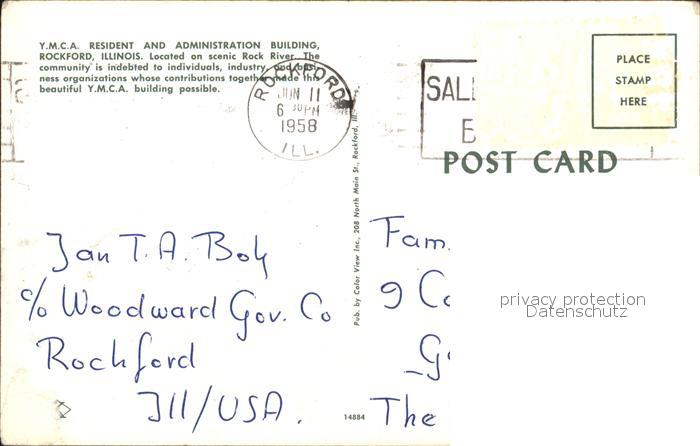 Y.M.C.A. RESIDENT AND ADMINISTRATION BUILDING,
ROCKFORD, ILLINOIS. Located on scenic Rock River. The
community is indebted to individuals, industry, and busi-
ness organizations whose contributions together made this
beautiful Y.M.C.A. building possible.
ROCKFORD
JUN 11
6 30 PM
1958
ILL.
SAL
PLACE
STAMP
HERE
POST CARD
Pub. by Color View Inc., 208 North Main St., Rockford, Ill.
Jan T. A. Boly
c/o Woodward Gov. Co
Rockford
Ill/USA.
14884
Fam.
9
The
privacy protection
Datenschutz